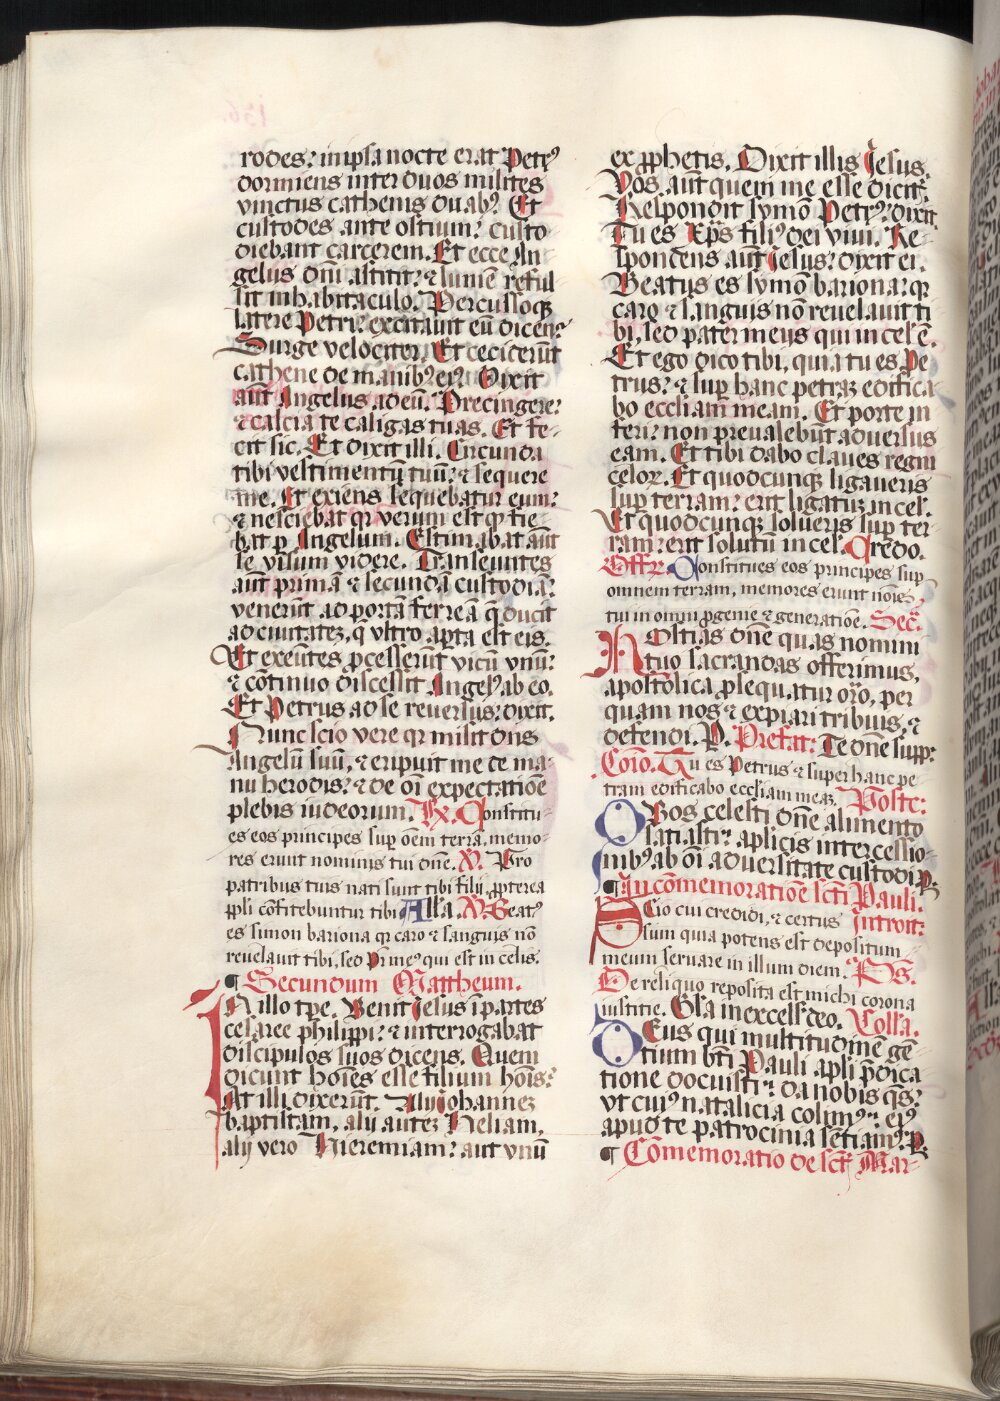 rodes: in ipsa nocte erat Petrꝰ
dormiens inter duos milites
vinctus cathenis duabꝰ. Et
custodes ante ostium: custo
diebant carcerem. Et ecce An
gelus dñi astitit: ⁊ lumē reful
sit in habitaculo. Percussoqꝫ
latere Petri: excitauit eū dicens:
Surge velociter. Et ceciderūt
cathene de manibꝰ eiꝰ. Dixit
aūt Angelus ad eū. Precingere:
⁊ calcia te caligas tuas. Et fe-
cit sic. Et dixit illi. Circunda
tibi vestimentū tuū: ⁊ sequere
me. Et exiens sequebatur eum:
⁊ nesciebat qꝛ verum est qꝫ fie-
bat ꝑ Angelum. Estimabat aūt
se visum videre. Transeuntes
aūt primā ⁊ secundā custodiā:
venerūt ad portā ferreā q̄ ducit
ad ciuitatez, q̄ vltro aperta est eis.
Et exeūtes ꝓcesserūt vicū vnū:
⁊ cōtinuo discessit Angelꝰ ab eo.
Et Petrus ad se reuersus: dixit.
Nunc scio vere qꝛ misit dn̄s
Angelū suū, ⁊ eripuit me de ma-
nu herodis: ⁊ de oī expectatiōe
plebis iudeorum. ꝶ. Constitu-
es eos principes suꝑ oēm terrā, memo-
res erunt nominis tui dñe. ℣. Pro
patribus tuis nati sunt tibi filij, ꝓpterea
ppli cōfitebuntur tibi Alla. ℣. Beatꝰ
es simon bariona qꝛ caro ⁊ sanguis nō
reuelauit tibi, sed pr̄ meꝰ qui est in celis.
¶ Secundum Mattheum.
IN illo tꝑe. Venit Jesus ī ꝑtes
cesaree philippi: ⁊ interrogabat
discipulos suos dicens. Quem
dicunt hoīes esse filium hoīs:
At illi dixerūt. Alij Johannez
baptistam, alij autez Heliam,
alij vero Hieremiam: aut vnū
ex ꝓphetis. Dixit illis Jesus.
Vos aūt quem me esse dicitis.
Respondit symō Petrꝰ: dixit
Tu es Xp̄s filiꝰ dei viui. Re-
spondens aūt Jesus: dixit ei.
Beatus es symō bariona: qꝛ
caro ⁊ sanguis nō reuelauit ti
bi, sed pater meus qui in cel ē.
Et ego dico tibi, quia tu es Pe
trus: ⁊ suꝑ hanc petraz edifica-
bo eccliam meam. Et porte in
feri: non preualebūt aduersus
eam. Et tibi dabo claues regni
celoꝝ. Et quodcunqꝫ ligaueris
suꝑ terram: erit ligatuꝫ in cel.
Et quodcunqꝫ solueris suꝑ ter
ram: erit solutū in cel. Credo.
Offꝫ. Constitues eos principes suꝑ
omnem terram, memores erunt noīs
tui in omni ꝓgenie ⁊ generatiōe. Secr̄.
HOstias dñe quas nomini
tuo sacrandas offerimus,
apostolica ꝓsequatur or̄o, per
quam nos ⁊ expiari tribuis, ⁊
defendi. P. Prefat: Te dñe supp:
Com̄o. Tu es Petrus ⁊ super hanc pe
tram edificabo eccliam meaz. Postc:
QVos celesti dñe alimento
satiasti: aplicis intercessio-
nibꝰ ab oī aduersitate custodi. P.
¶ In cōmemoratiōe scti Pauli.
SCio cui credidi, ⁊ certus Introit:
sum quia potens est depositum
meum seruare in illum diem. Ps.
De reliquo reposita est michi corona
iustitie. Gl̄a in excels deo. Coll'a.
DEus qui multitudinē gē-
tium bt̄i Pauli apli p̄dica
tione docuisti: da nobis qs̄:
vt cuiꝰ natalicia colimꝰ: eiꝰ
apud te patrocinia sētiamꝰ. P.
¶ Cōmemoratio de sct̄ Mar-